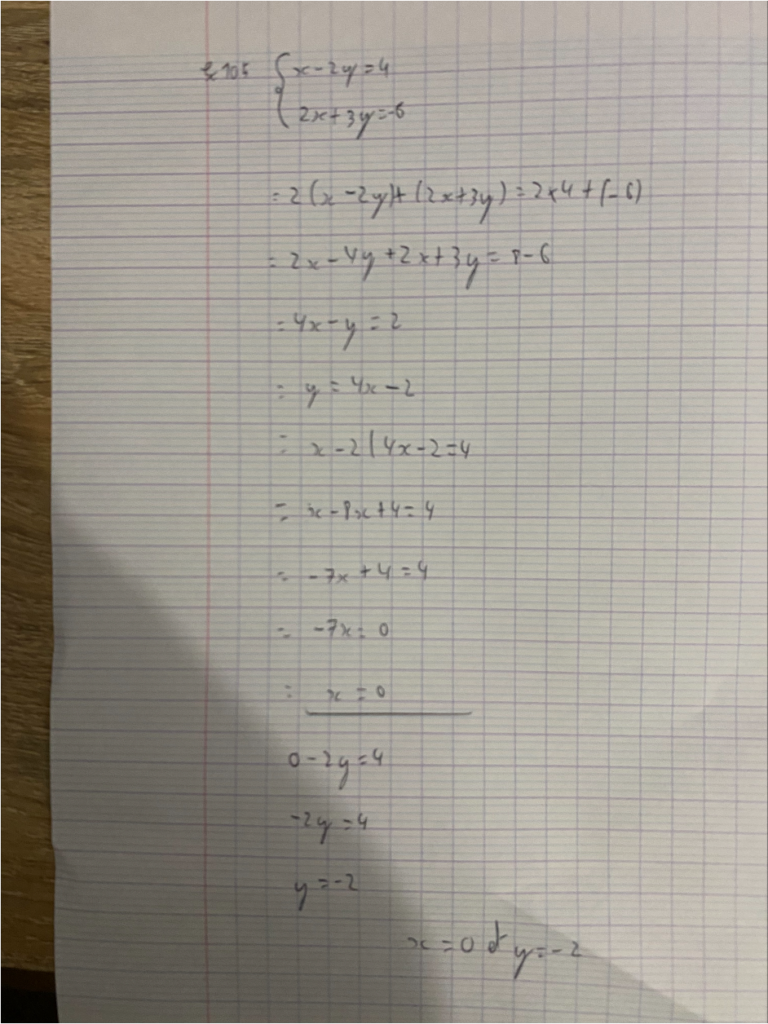 Ex 105 { x-2y=4
2x+3y=-6
= 2(x-2y)+(2x+3y)=2x4+(-6)
= 2x-4y+2x+3y=8-6
= 4x-y=2
= y=4x-2
= x-2(4x-2=4
= x-8x+4=4
= -7x+4=4
= -7x=0
= x=0
0-2y=4
-2y=4
y=-2
x=0 et y=-2